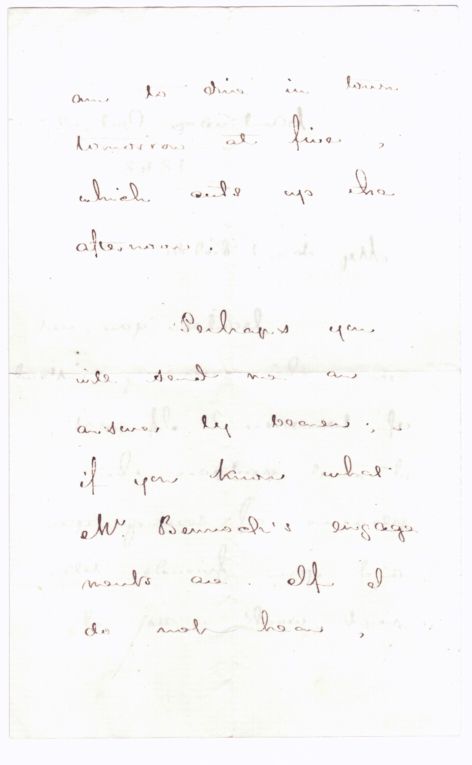 am to dine in town
tomorrow at five,
which cuts up the
afternoon.
Perhaps you
will send me an
answer by bearer,
if you know what
Mr. Bennoch's engage
ments are. If I
do not hear,